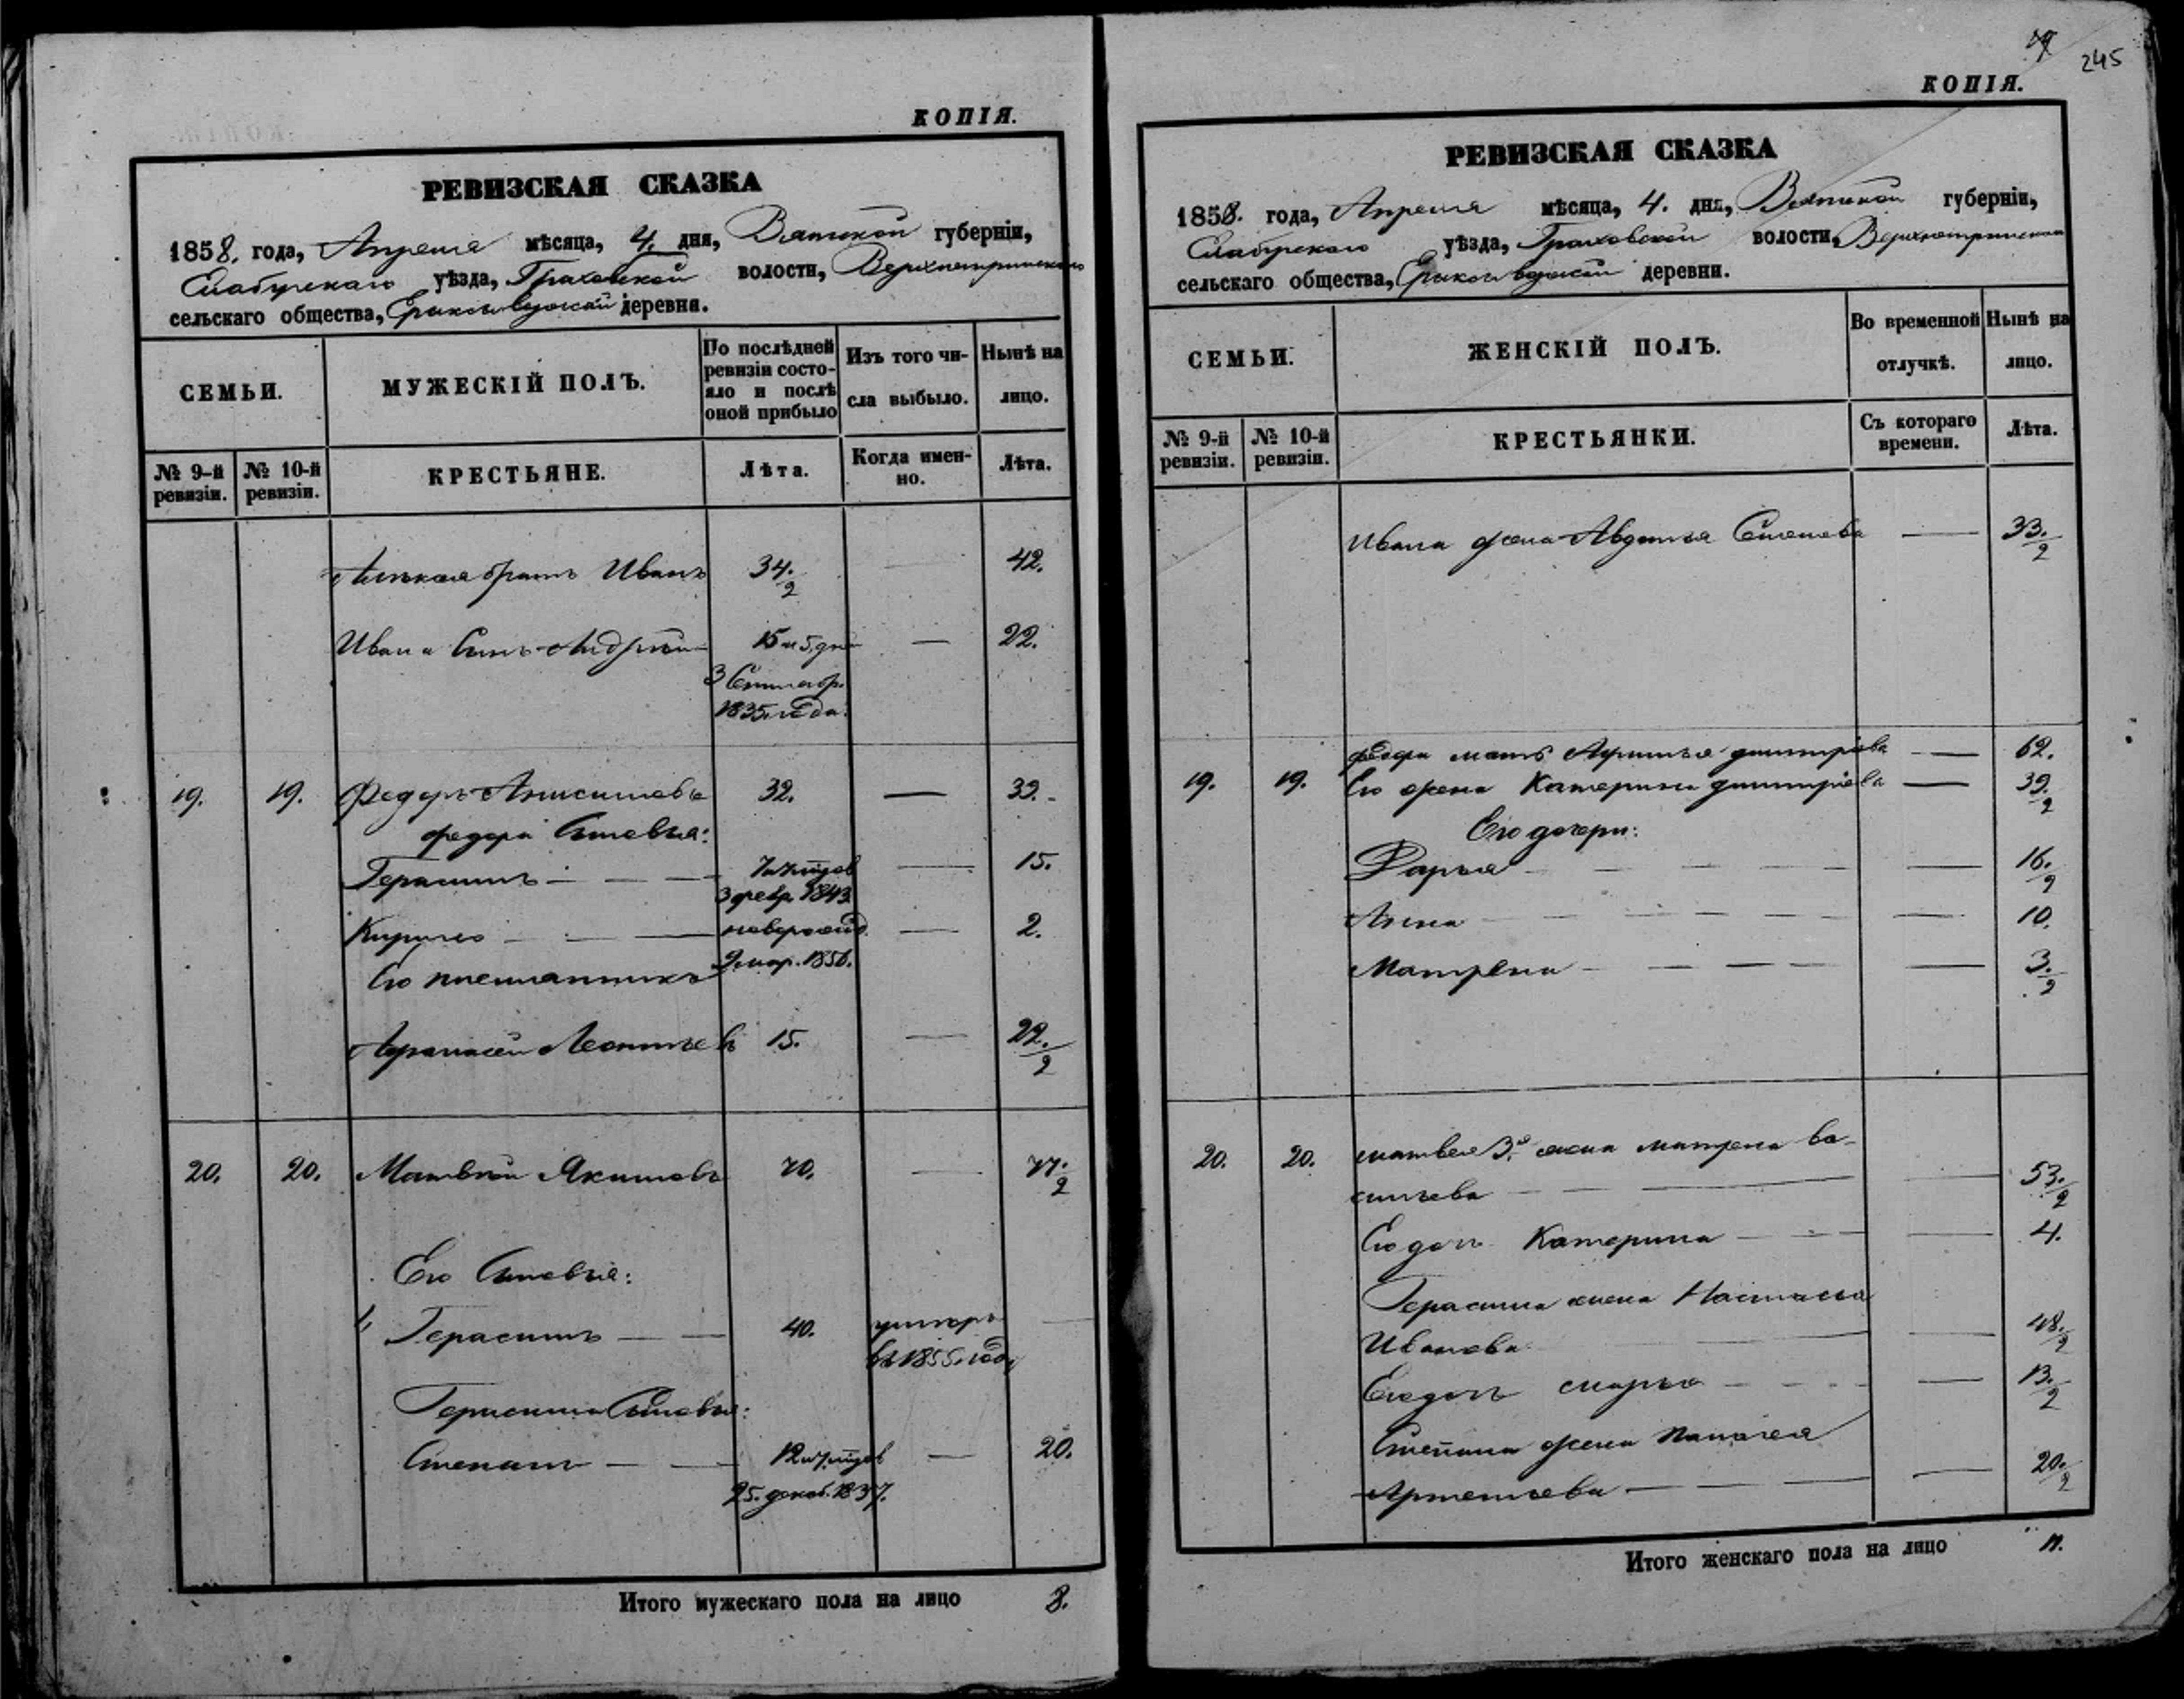 КОПІЯ.
РЕВИЗСКАЯ СКАЗКА
1858. года, Апреля мѣсяца, 4. дня, Вятской губерніи,
Елабужскаго уѣзда, Граховской волости,
сельскаго общества, деревни.
СЕМЬИ.
МУЖЕСКІЙ ПОЛЪ.
По послѣдней ревизіи состояло и послѣ оной прибыло
Изъ того числа выбыло.
Нынѣ на лицо.
№ 9-й ревизіи.
№ 10-й ревизіи.
КРЕСТЬЯНЕ.
Лѣта.
Когда именно.
Лѣта.
братъ Иванъ 34. 2 — 42.
Ивана Сынъ Андрей 15 м 5 дни — 22.
3 Сентябр.
1835. года.
19. 19. Федоръ Анисимовъ 32. — 39.
Федора Сыновья:
Герасимъ — — — 7 — 15.
3 февр. 1843.
Кирило — — — новорожд. — 2.
9 мар. 1856.
Его племянникъ
Афанасей Леонтьевъ 15. — 22. 2
20. 20. Матвѣй Якимовъ 70. — 77. 2
Его Сыновья:
1, Герасимъ — — 40. умеръ —
въ 1855. году
Герасима Сыновья:
Степанъ — — 12 — 20.
25. декаб. 1837.
Итого мужескаго пола на лицо 8.
245
КОПІЯ.
РЕВИЗСКАЯ СКАЗКА
1858. года, Апреля мѣсяца, 4. дня, Вятской губерніи,
Елабужскаго уѣзда, Граховской волости,
сельскаго общества, деревни.
СЕМЬИ.
ЖЕНСКІЙ ПОЛЪ.
Во временной отлучкѣ.
Нынѣ на лицо.
№ 9-й ревизіи.
№ 10-й ревизіи.
КРЕСТЬЯНКИ.
Съ котораго времени.
Лѣта.
Ивана жена Авдотья Семенова — 33. 2
Федора мать дмитріева — 62.
19. 19. Его жена Катерина дмитріева — 39. 2
Его дочери:
Дарья — — — — — 16. 2
Анна — — — — — 10.
Матрена — — — — — 3. 2
20. 20. Матвея 3я. жена Матрена Ва-
сильева — — — — 53. 2
Его дочь Катерина — — — 4.
Герасима жена Настасья
Иванова. — — 48. 2
Его дочь Марья — — — — 13. 2
Степана жена Палагея
Артемьева — — — — 20. 2
Итого женскаго пола на лицо 11.